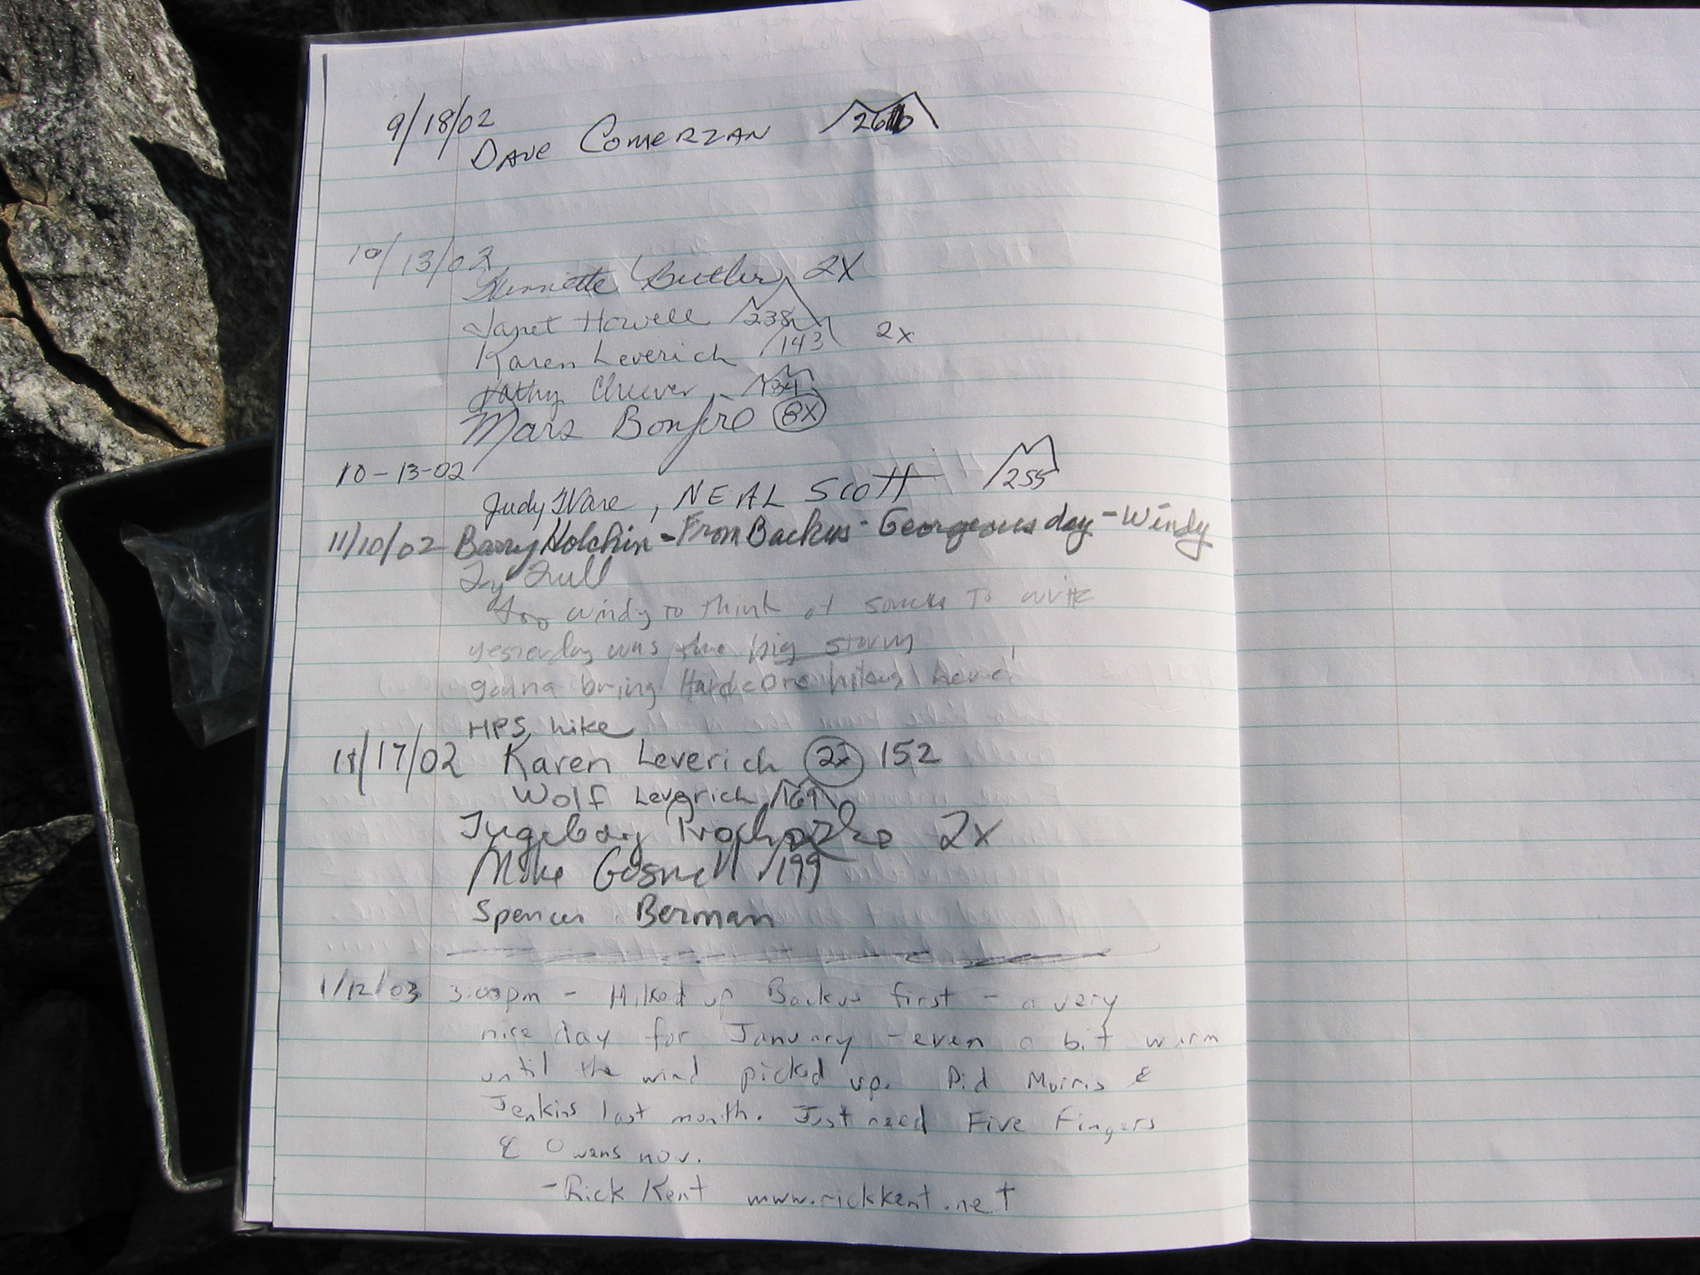 9/18/02
Dave Comerzan 260
10/13/02
Butler 2X
Janet Howell 238
Karen Leverich 143 2x
Kathy Cheever 134
Mars Bonfire 8X
10-13-02
Judy Ware, NEAL Scott 255
11/10/02 Barry Holchin - From Backus - Georgeous day - Windy
Ty Trull
Too windy to think of to write
yesterday was the big storm
gonna bring Hardcore here!
HPS hike
11/17/02 Karen Leverich 2x 152
Wolf Leverich 169
Ingeborg Prochazka 2x
Mike Gosnell 199
Spencer Berman
1/12/03 3:00pm - Hiked up Backus first - a very
nice day for January - even a bit warm
until the wind picked up. Did Morris &
Jenkins last month. Just need Five Fingers
& Owens now.
- Rick Kent www.rickkent.net